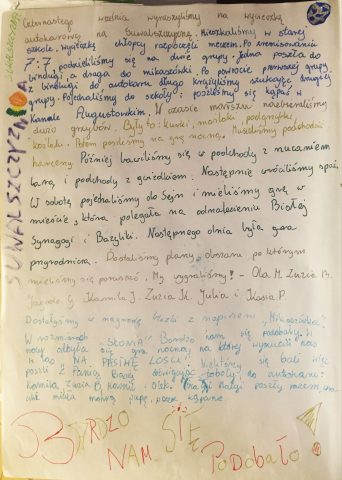 Czternastego września wyruszyliśmy na wycieczkę
autokarową na Suwalszczyznę. Mieszkaliśmy w starej
szkole. Wycieczkę chłopcy rozpoczęli meczem. Po zremisowaniu
7:7 podzieliliśmy się na dwie grupy. Jedna poszła do
bindugi, a druga do mikaszówki. Po powrocie pierwszej grupy
z bindugi do autokaru długo krążyliśmy szukając drugiej
grupy. Pojechaliśmy do szkoły i poszliśmy się kąpać w
Kanale Augustowskim. W czasie marszu nazbieraliśmy
dużo grzybów. Były to: kurki, maślaki, podgrzybki,
koźlaki. Potem poszliśmy na grę nocną. Musieliśmy podchodzić
Później bawiliśmy się w podchody z rzucaniem
i podchody z gwizdkiem. Następnie wróciliśmy spać.
W sobotę pojechaliśmy do Sejn i mieliśmy grę w
mieście, która polegała na odnalezieniu Białej
Synagogi i Bazyliki. Następnego dnia była gra
przyrodnicza. Dostaliśmy plany obszaru po którym
mieliśmy się poruszać. My wygraliśmy! - Ola M. Zuzia B.
Kamila J. Zuzia K. Julia i Kasia P.
Dostaliśmy w nagrodę z napisem
"Słonia" Bardzo nam się podobały. W
nocy odbyła się gra nocna, na której wyrzucili nas
w las NA PASTWĘ LOSU! Niektórzy się bali więc
poszli z Panią Basią do autokaru:
Kornelia, Zuzia B,
SUWALSZCZYZNA
BARDZO
NAM SIĘ
PODOBAŁO!